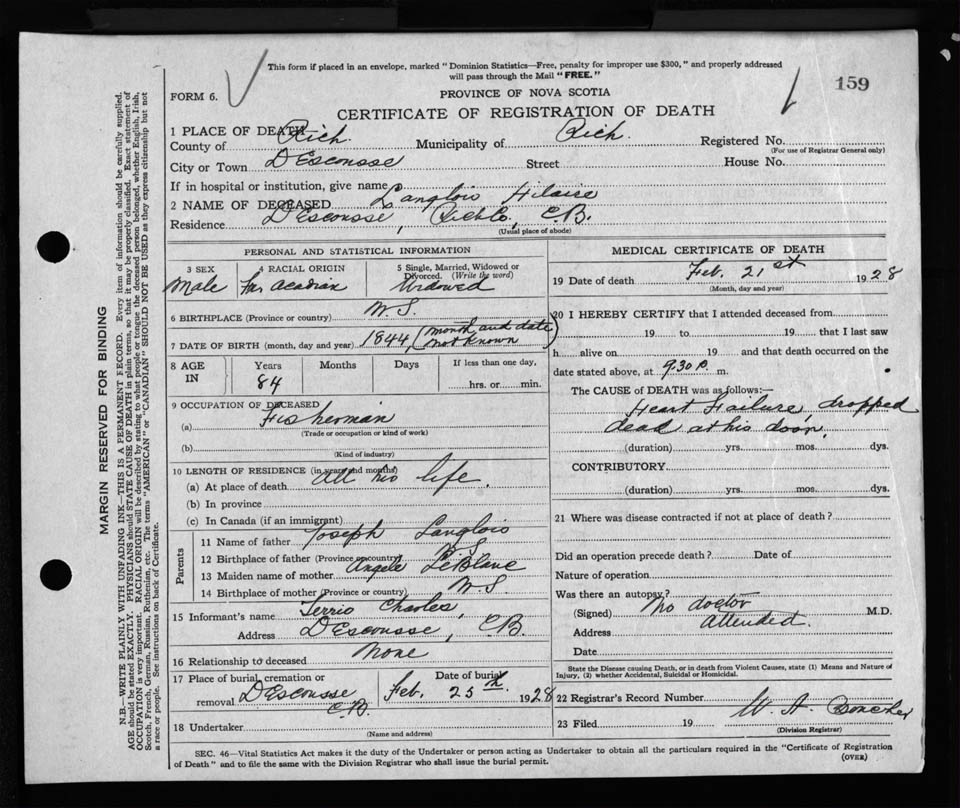 This form if placed in an envelope, marked "Dominion Statistics—Free, penalty for improper use $300," and properly addressed
will pass through the Mail "FREE."
159
FORM 6.
PROVINCE OF NOVA SCOTIA
CERTIFICATE OF REGISTRATION OF DEATH
1 PLACE OF DEATH
County of Rich. Municipality of Rich. Registered No.
(For use of Registrar General only)
City or Town D'Escousse Street House No.
If in hospital or institution, give name
2 NAME OF DECEASED Langlois Hilaire
Residence D'Escousse, C.B.
(Usual place of abode)
PERSONAL AND STATISTICAL INFORMATION
3 SEX Male
4 RACIAL ORIGIN Acadian
5 Single, Married, Widowed or
Divorced. (Write the word)
Widowed
6 BIRTHPLACE (Province or country) N.S.
7 DATE OF BIRTH (month, day and year) 1844 (month and date
not known)
8 AGE
IN
Years 84 Months Days If less than one day,
hrs. or min.
9 OCCUPATION OF DECEASED
(a) Fisherman
(Trade or occupation or kind of work)
(b)
(Kind of industry)
10 LENGTH OF RESIDENCE (in years and months)
(a) At place of death All his life.
(b) In province
(c) In Canada (if an immigrant)
Parents
11 Name of father Joseph Langlois
12 Birthplace of father (Province or country) N.S.
13 Maiden name of mother Angele LeBlanc
14 Birthplace of mother (Province or country) N.S.
15 Informant's name Terrio Charles,
Address D'Escousse, C.B.
16 Relationship to deceased None
17 Place of burial, cremation or
removal D'Escousse
C.B.
Date of burial
Feb. 25th 1928
18 Undertaker
(Name and address)
MEDICAL CERTIFICATE OF DEATH
19 Date of death Feb. 21st 1928
(Month, day and year)
20 I HEREBY CERTIFY that I attended deceased from
19 to 19 that I last saw
h alive on 19 and that death occurred on the
date stated above, at 9.30 P. m.
The CAUSE of DEATH was as follows:—
Heart Failure, dropped
dead at his door.
(duration) yrs. mos. dys.
CONTRIBUTORY
(duration) yrs. mos. dys.
21 Where was disease contracted if not at place of death?
Did an operation precede death? Date of
Nature of operation
Was there an autopsy?
(Signed) No doctor M.D.
Address attended.
Date
State the Disease causing Death, or in death from Violent Causes, state (1) Means and Nature of
Injury, (2) whether Accidental, Suicidal or Homicidal.
22 Registrar's Record Number
23 Filed 19 W. A.
(Division Registrar)
SEC. 46—Vital Statistics Act makes it the duty of the Undertaker or person acting as Undertaker to obtain all the particulars required in the "Certificate of Registration
of Death" and to file the same with the Division Registrar who shall issue the burial permit.
(OVER)
MARGIN RESERVED FOR BINDING
N.B.—WRITE PLAINLY WITH UNFADING INK—THIS IS A PERMANENT RECORD. Every item of information should be carefully supplied.
AGE should be stated EXACTLY. PHYSICIANS should STATE CAUSE OF DEATH in plain terms, so that it may be properly classified. Exact statement of
OCCUPATION is very important. RACIAL ORIGIN will be described by stating to what people or tongue the deceased person belonged, whether English, Irish,
Scotch, French, German, Russian, Ruthenian, etc. The terms "AMERICAN" or "CANADIAN" SHOULD NOT BE USED as they express citizenship but not
a race or people. See instructions on back of Certificate.